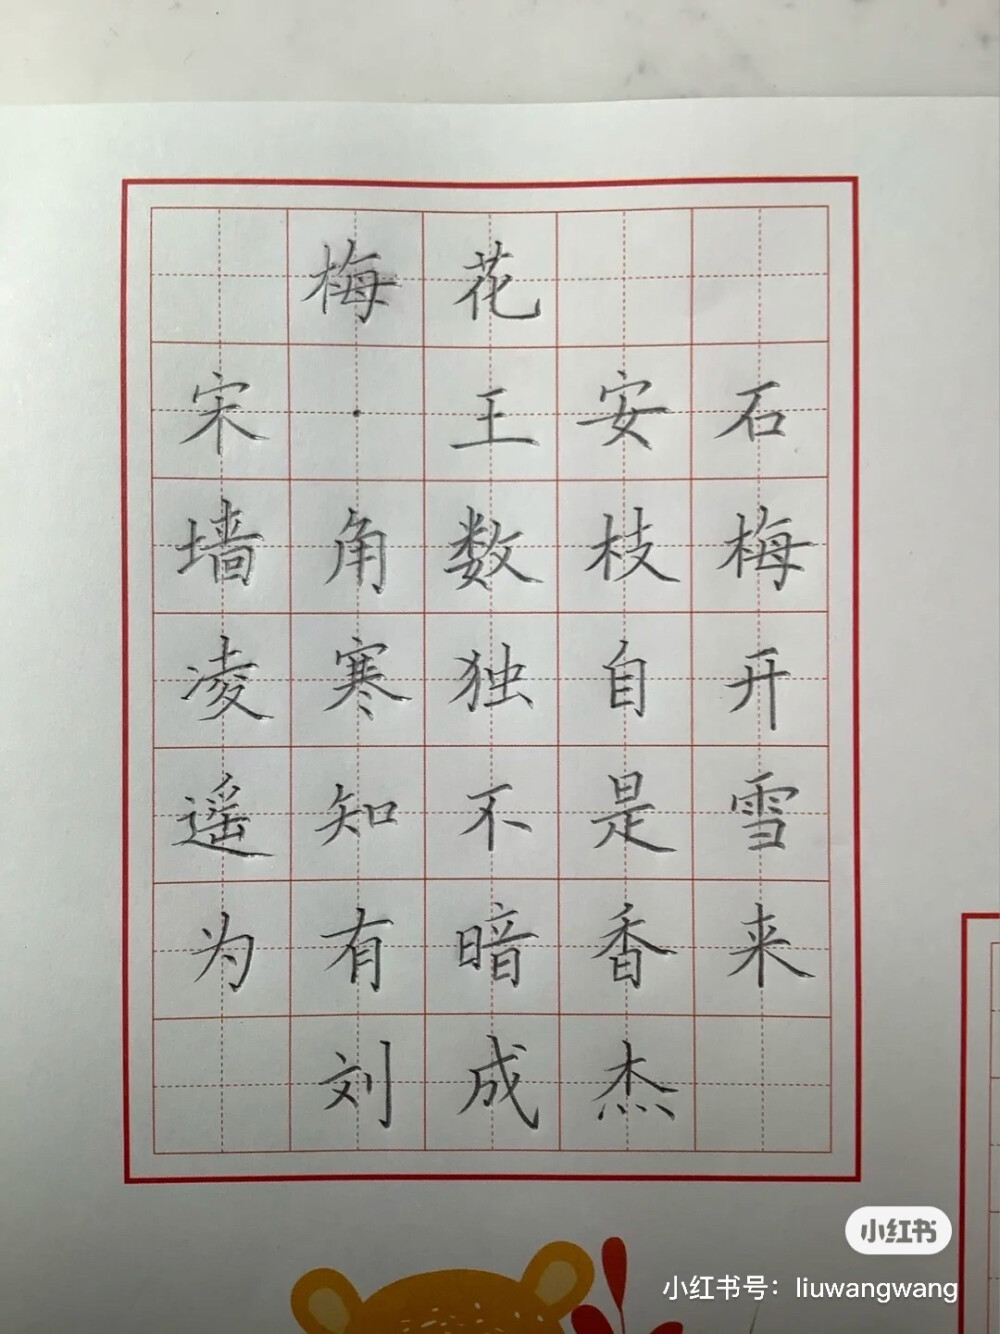 梅花
宋·王安石
墙角数枝梅
凌寒独自开
遥知不是雪
为有暗香来
刘成杰
小红书
小红书号：liuwangwang